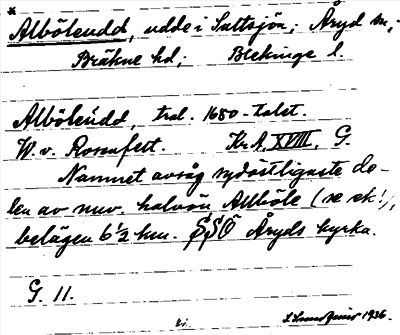 *
Alböleudd, udde i Saltsjön; Åryd sn,;
Bräkne hd; Blekinge l.
Alböleudd trol. 1680-talet.
W. v. Rosenfelt. Kr.A. XVIII. G.
Namnet avsåg sydöstligaste de-
len av nuv. halvön Allböle (se ek!),
belägen 6½ km. SSÖ Åryds kyrka.
G. 11.
1936.